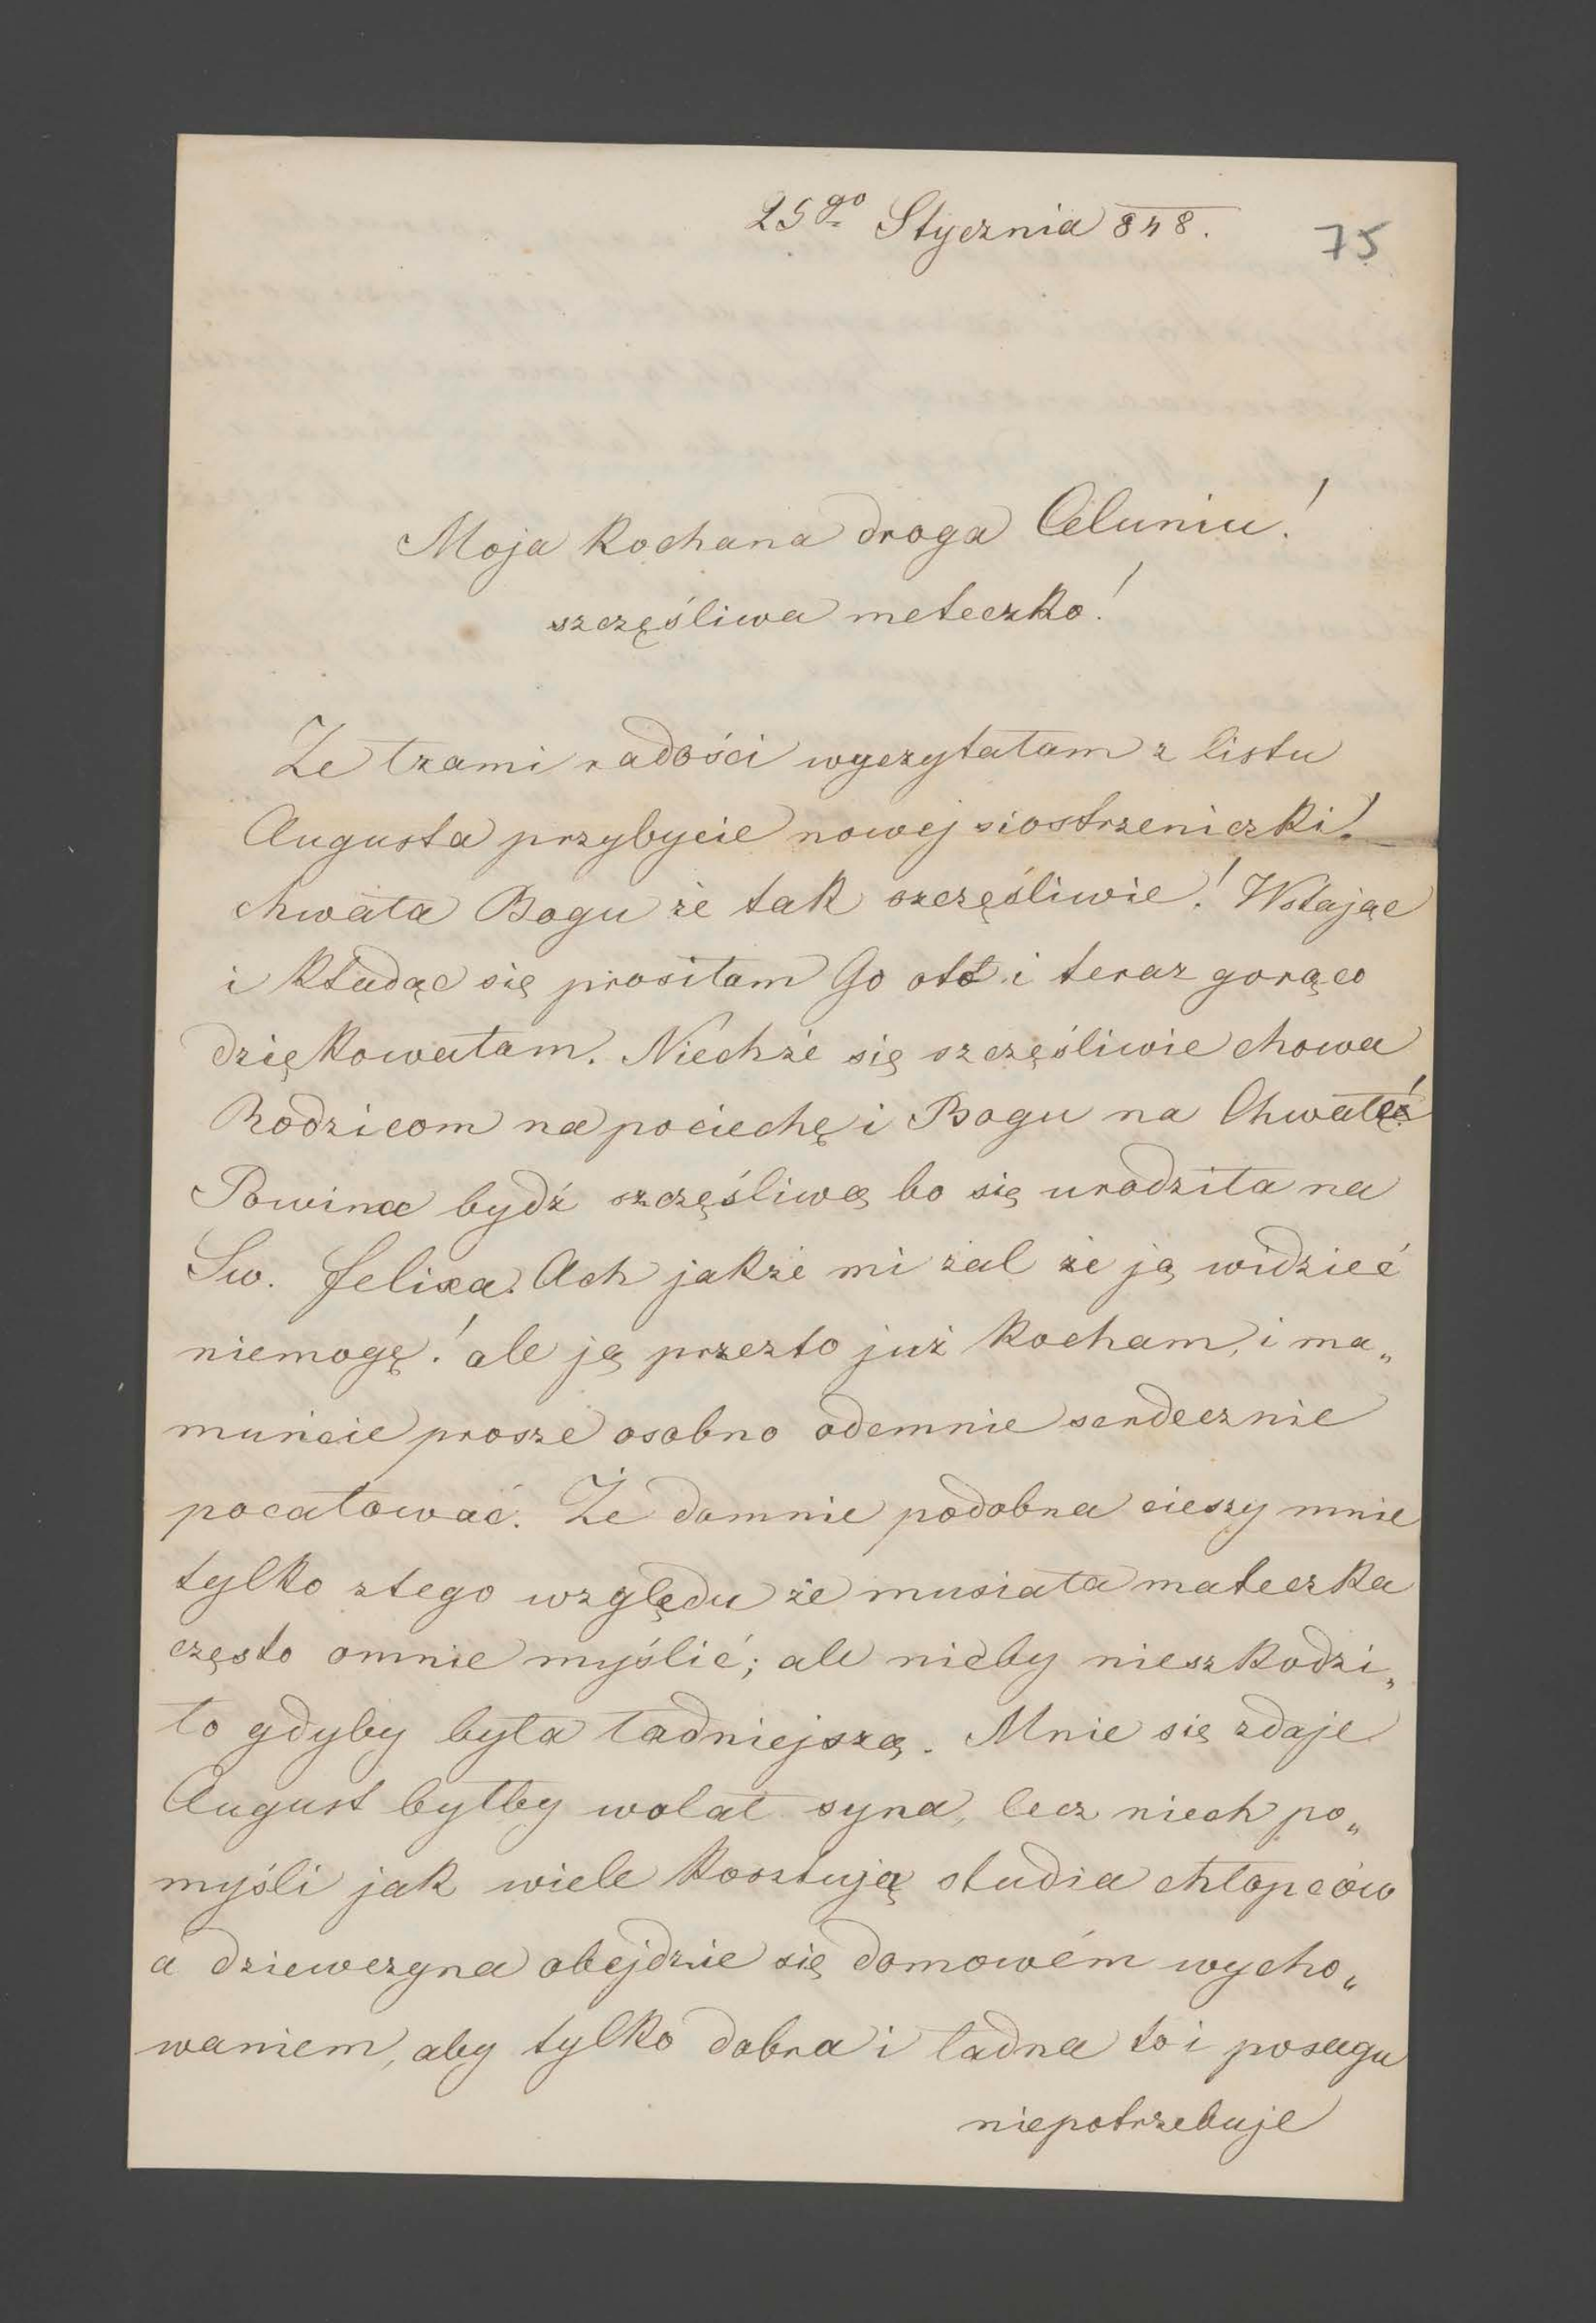 25go Stycznia 848.
75
Moja kochana droga Celuniu!
szczęśliwa mateczko!
Ze łzami radości wyczytałam z listu
Augusta przybycie nowej siostrzeniczki!
chwała Bogu że tak szczęśliwie! Wstając
i kładąc się prosiłam Go otoż i teraz gorąco
dziękowałam. Niechże się szczęśliwie chowa
Rodzicom na pociechę i Bogu na Chwałę!
Powina bydź szczęśliwą bo się urodziła na
Sw. Felixa. Ach jakże mi żal że ją widzieć
niemogę! ale ją przezto już kocham, i ma„
muńcie prosze osobno odemnie serdecznie
pocałować. Że domnie podobna cieszy mnie
tylko ztego względu że musiała mateczka
często omnie myślić; ale nicby nieszkodzi„
ło gdyby była ładniejszą. Mnie się zdaje
August byłby wolał syna, lecz niech po„
myśli jak wiele kosztują studia chłopców
a dziewczyna obejdzie się domowém wycho„
waniem, aby tylko dobra i ładna to i posagu
niepotrzebuje